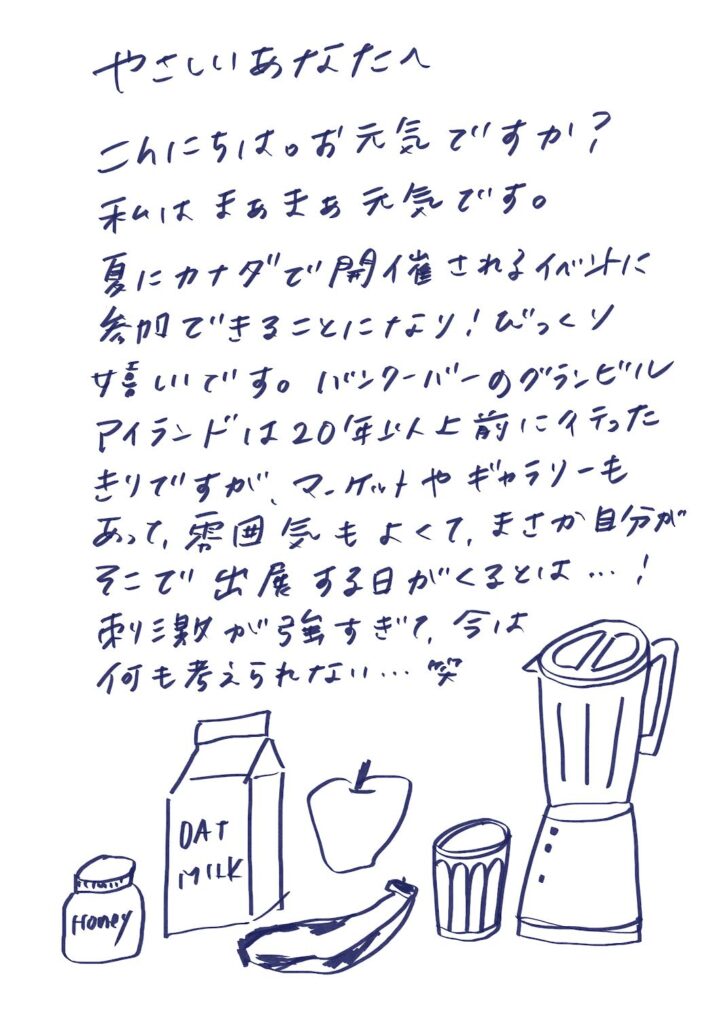 やさしいあなたへ
こんにちは。お元気ですか?
私はまぁまぁ元気です。
夏にカナダで開催されるイベントに
参加できることになり!びっくり
嬉しいです。バンクーバーのグランビル
アイランドは20年以上前に行った
きりですが、マーケットやギャラリーも
あって、雰囲気もよくて、まさか自分が
そこで出展する日がくるとは…!
刺激が強すぎて、今は
何も考えられない…笑
OAT
MILK
Honey